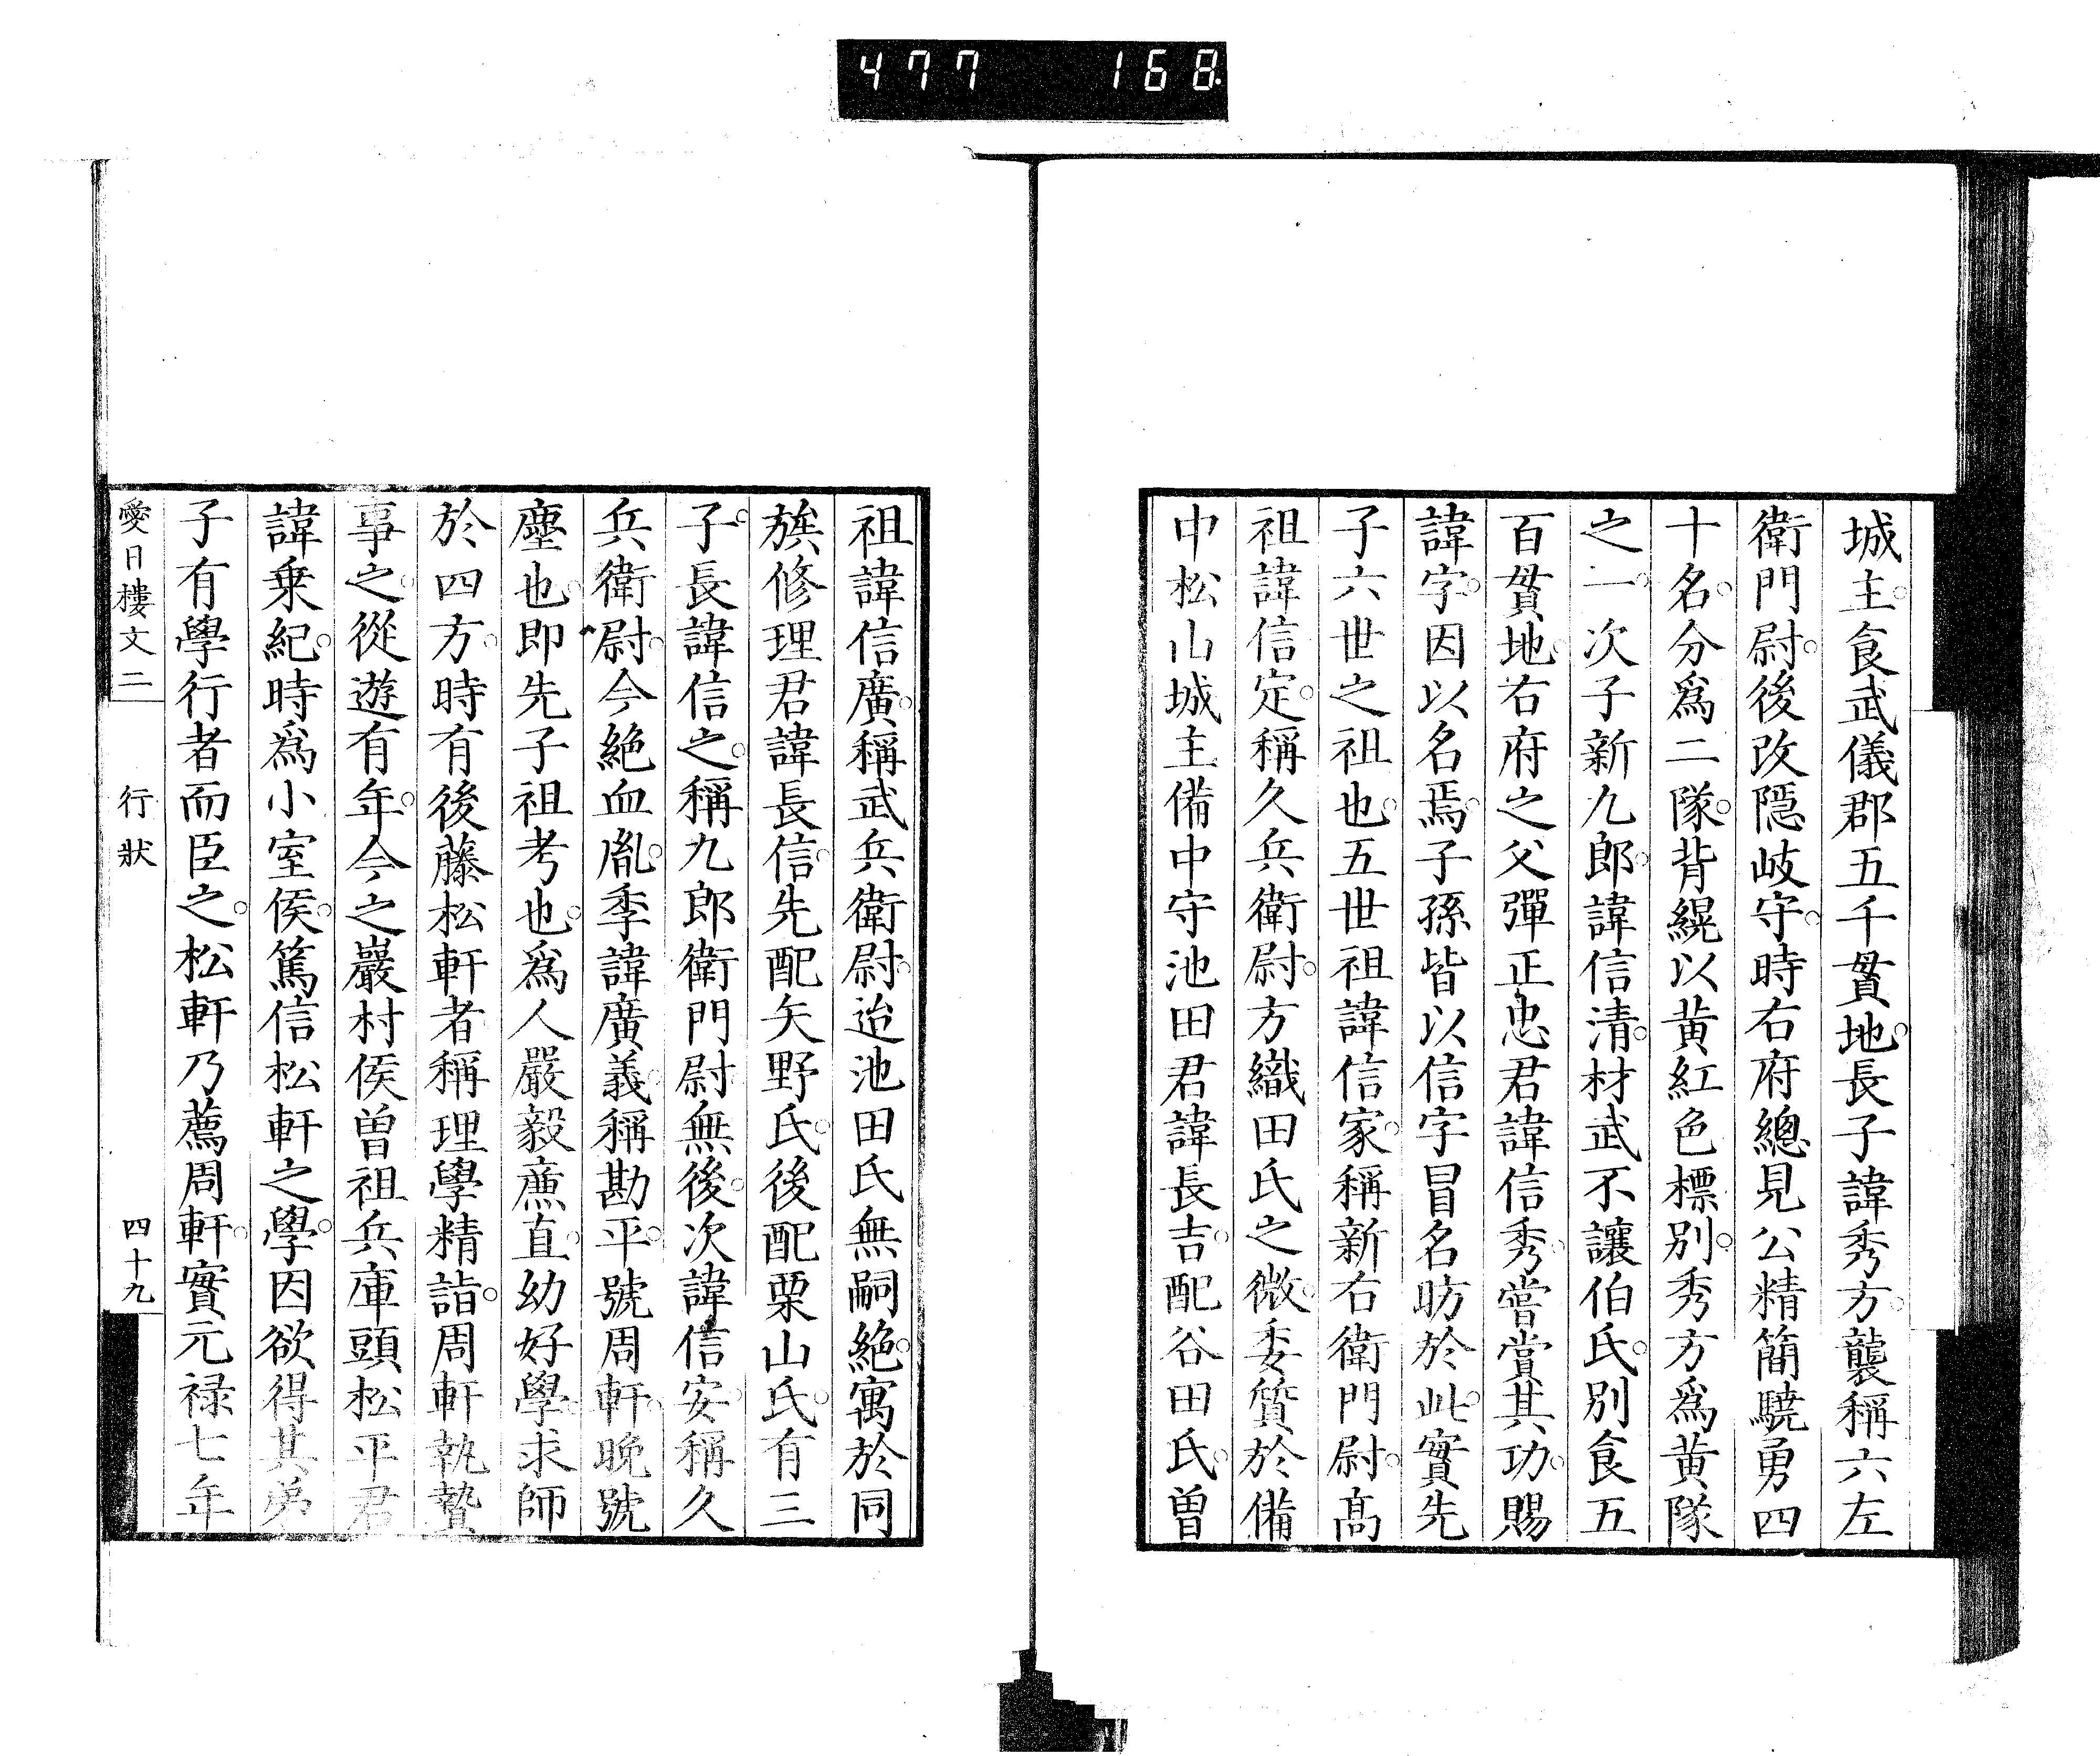 477 168
城主。食武儀郡五千貫地。長子諱秀方。襲稱六左
衛門尉。後改隱岐守。時右府總見公精簡驍勇四
十名。分爲二隊。背縨以黃紅色標別。秀方爲黃隊
之一。次子新九郎。諱信清。材武不讓伯氏。別食五
百貫地。右府之父彈正忠君諱信秀。嘗賞其功。賜
諱字。因以名焉。子孫皆以信字冒名昉於此。實先
子六世之祖也。五世祖諱信家。稱新右衛門尉。高
祖諱信定。稱久兵衛尉。方織田氏之微。委質於備
中松山城主備中守池田君諱長吉。配谷田氏。曾
祖諱信廣。稱武兵衛尉。迨池田氏無嗣絕。寓於同
族修理君諱長信。先配矢野氏。後配栗山氏。有三
子。長諱信之。稱九郎衛門尉。無後。次諱信安。稱久
兵衛尉。今絕血胤。季諱廣義。稱勘平。號周軒。晚號
塵也。即先子祖考也。爲人嚴毅廉直。幼好學。求師
於四方。時有後藤松軒者稱理學精詣。周軒執贄
事之。從遊有年。今之巖村侯曾祖兵庫頭松平君
諱乘紀。時爲小室侯。篤信松軒之學。因欲得其弟
子有學行者而臣之。松軒乃薦周軒。實元祿七年
愛日樓文二 行狀 四十九